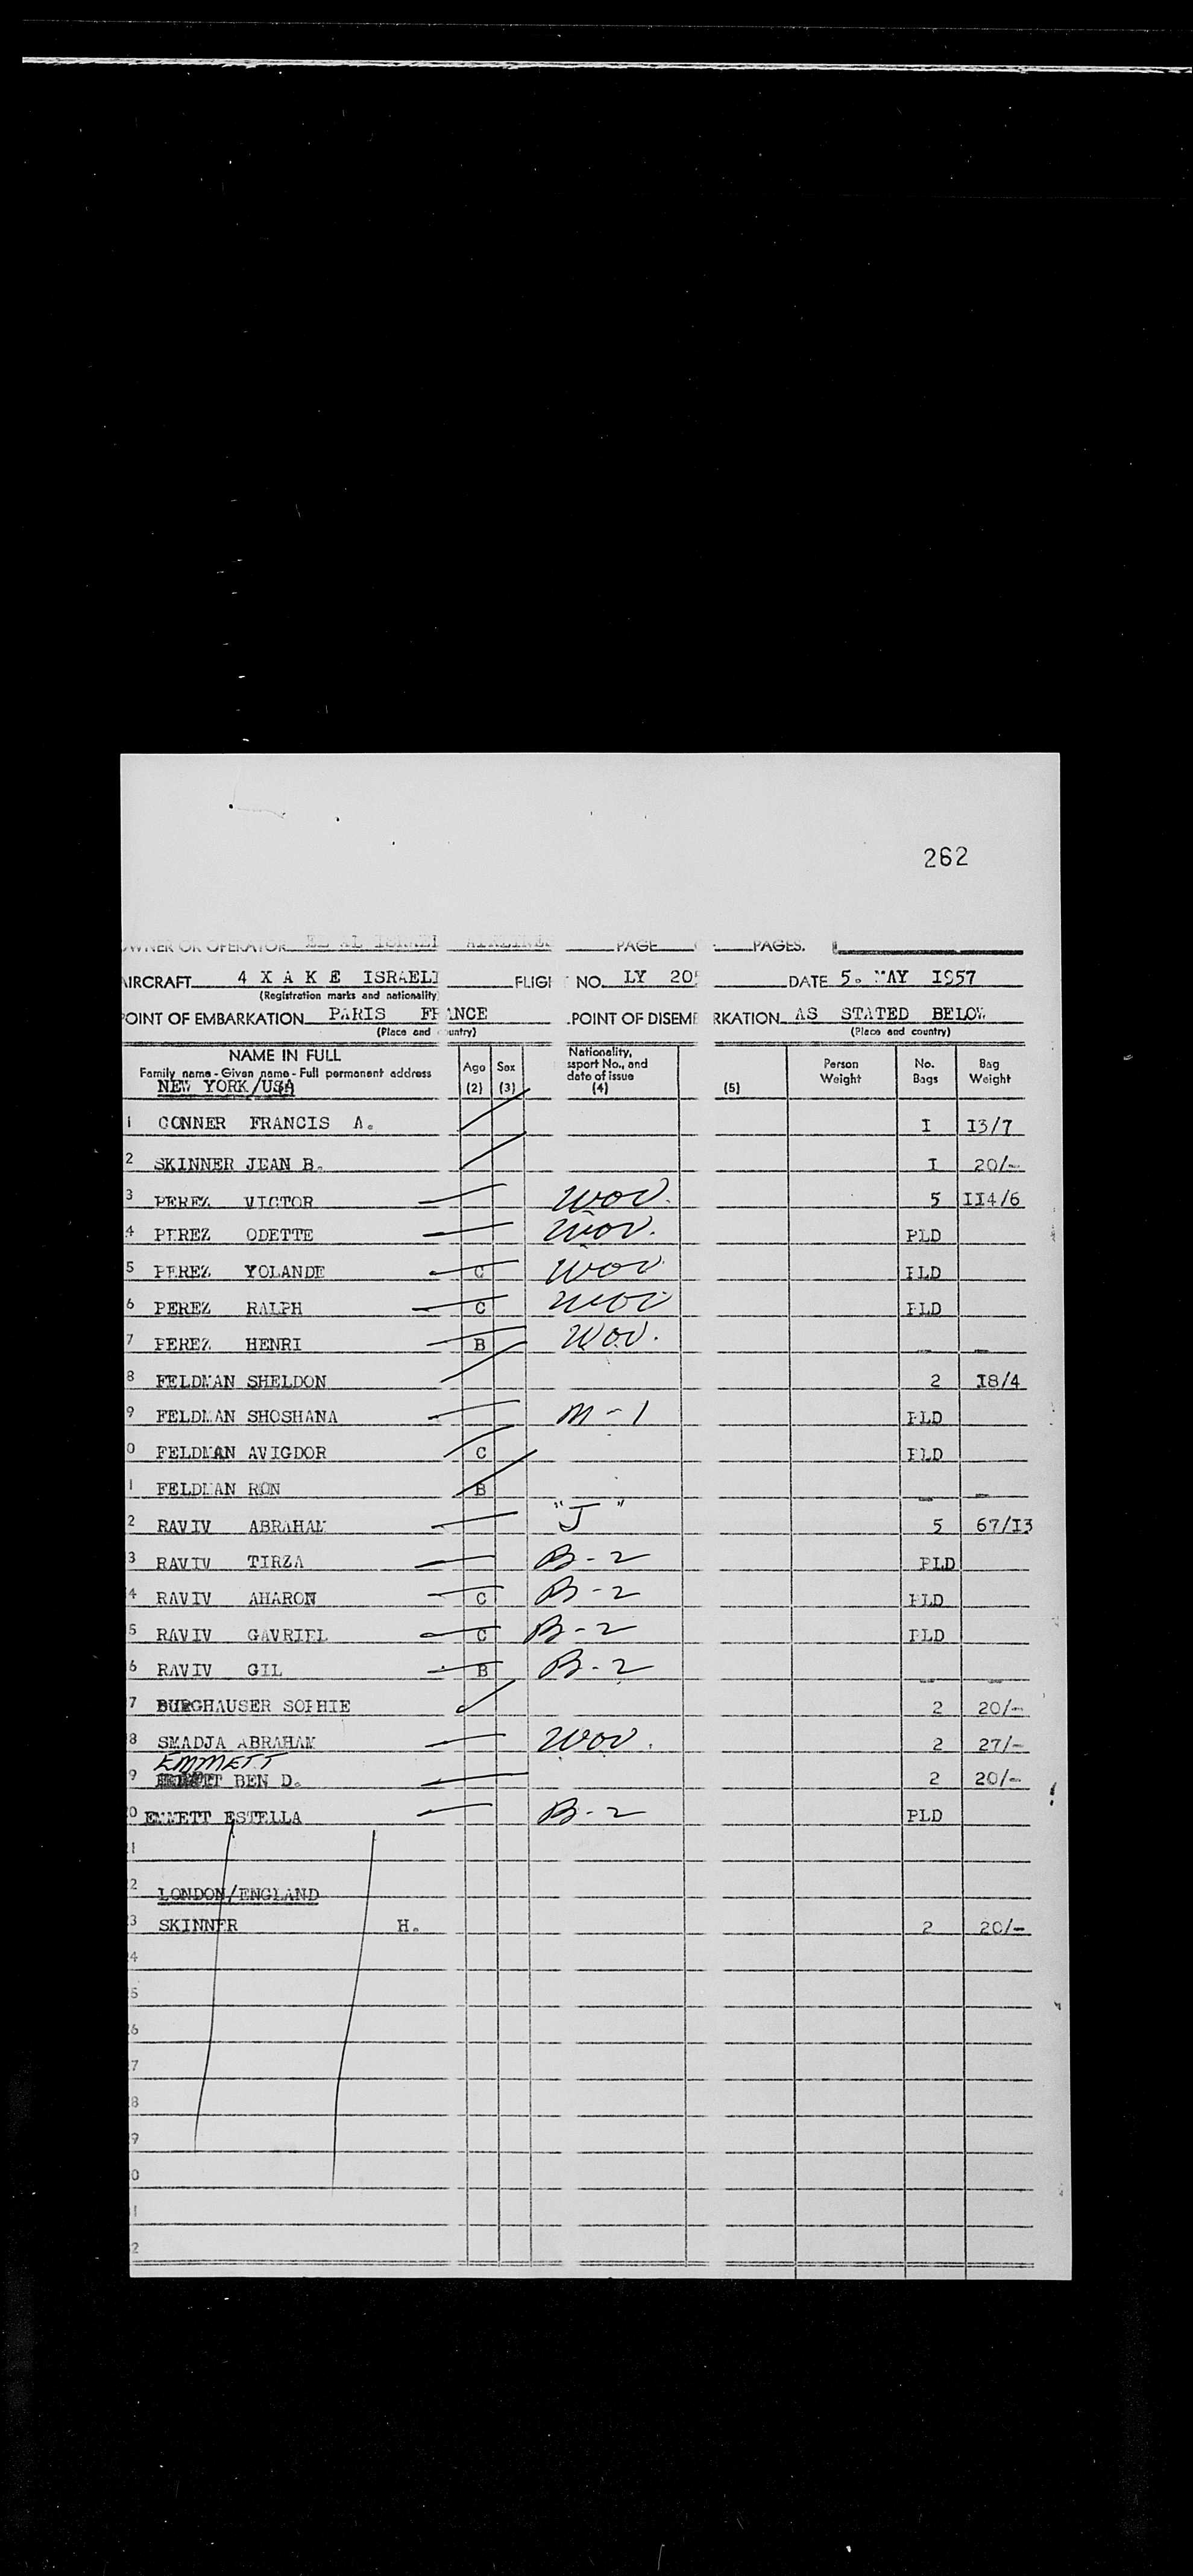 262
OWNER OR OPERATOR EL AL ISRAEL AIRLINES PAGE PAGES.
AIRCRAFT 4 X A K E ISRAELI FLIGH NO. LY 205 DATE 5. MAY I957
(Registration marks and nationality)
POINT OF EMBARKATION PARIS FRANCE POINT OF DISEMBARKATION AS STATED BELOW
(Place and country) (Place and country)
NAME IN FULL
Family name - Given name - Full permanent address
NEW YORK/USA
Age (2) Sex (3) Nationality, ssport No., and date of issue (4) (5) Person Weight No. Bags Bag Weight
1 CONNER FRANCIS A. I I3/7
2 SKINNER JEAN B. I 20/-
3 PEREZ VICTOR WOV. 5 II4/6
4 PEREZ ODETTE WOV. PLD
5 PEREZ YOLANDE C WOV PLD
6 PEREZ RALPH C WOV PLD
7 PEREZ HENRI B WOV. - -
8 FELDMAN SHELDON 2 I8/4
9 FELDMAN SHOSHANA M-1 PLD
0 FELDMAN AVIGDOR C PLD
1 FELDMAN RON B - -
2 RAVIV ABRAHAM "J" 5 67/I3
3 RAVIV TIRZA B-2 PLD
4 RAVIV AHARON C B-2 PLD
5 RAVIV GAVRIEL C B-2 PLD
6 RAVIV GIL B B-2 - -
7 BURGHAUSER SOPHIE 2 20/-
8 SMADJA ABRAHAM WOV. 2 27/-
EMMETT
9 BEN D. 2 20/-
0 EMMETT ESTELLA B-2 PLD
1
2 LONDON/ENGLAND
3 SKINNER H. 2 20/-
4
5
6
7
8
9
0
1
2